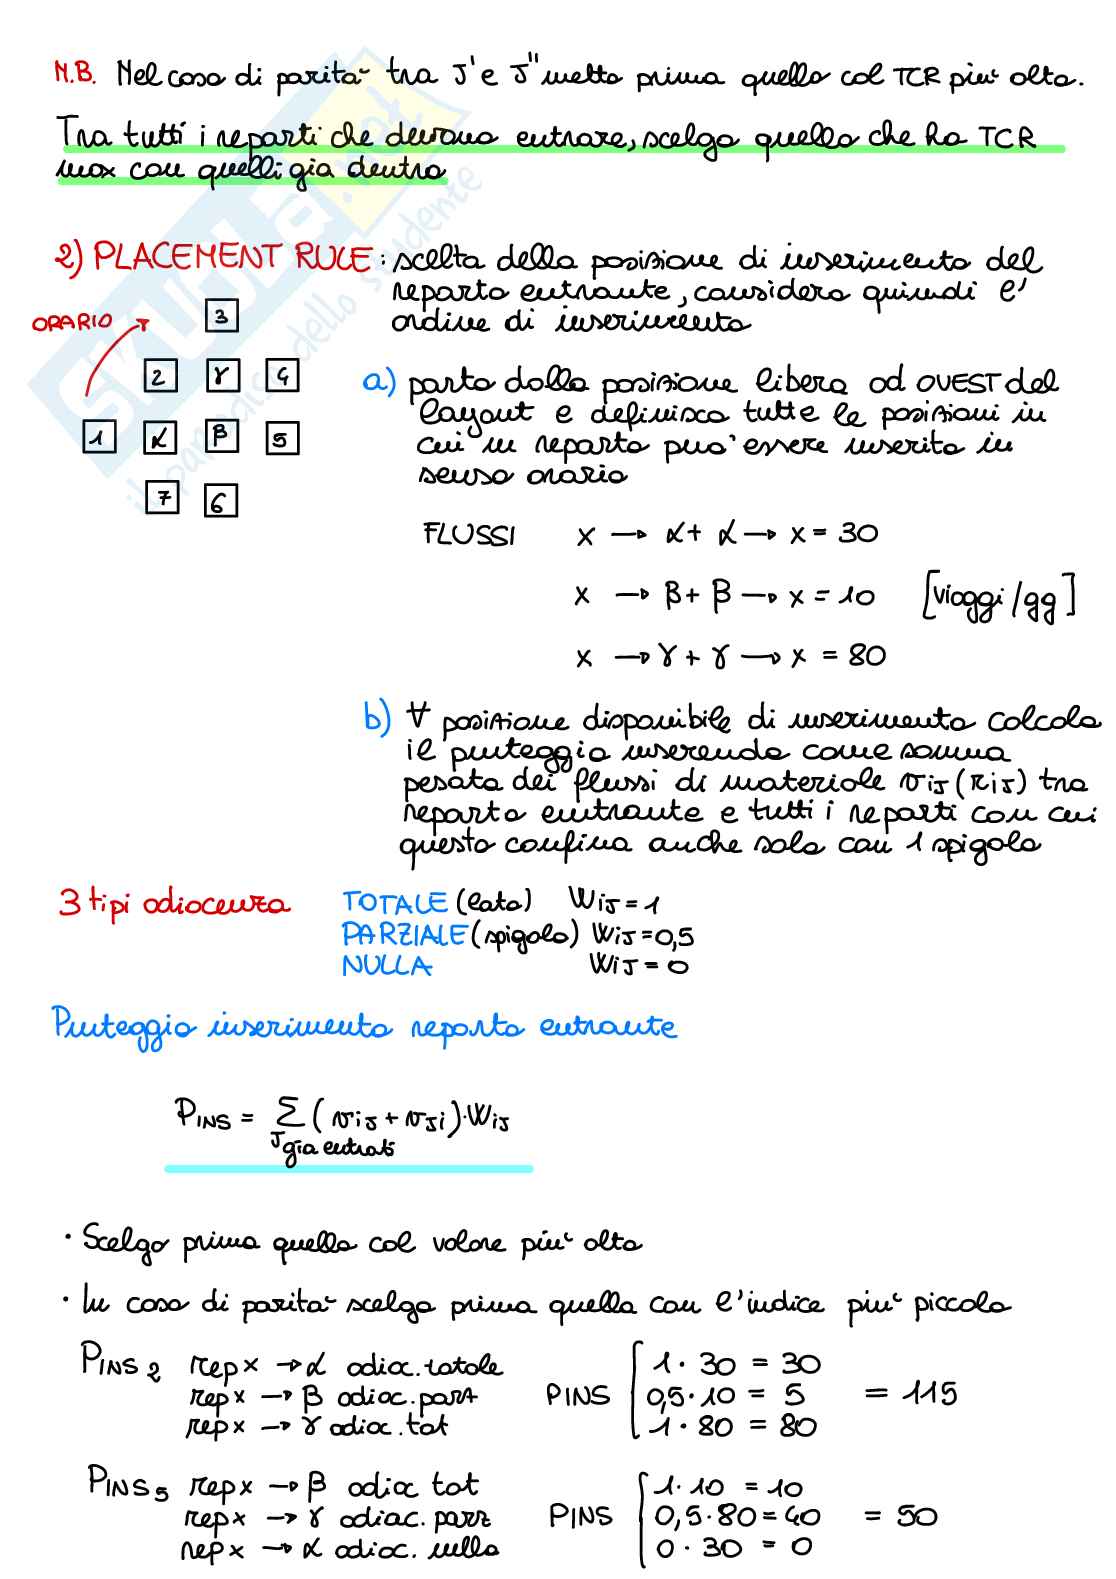 N.B. Nel caso di parità tra J' e J'' metto prima quello col TCR più alto.
Tra tutti i reparti che devono entrare, scelgo quello che ha TCR
max con quelli già dentro
2) PLACEMENT RULE: scelta della posizione di inserimento del
reparto entrante, considero quindi l'
ordine di inserimento
ORARIO
3
2 γ 4
1 α β 5
7 6
a) parto dalla posizione libera ad OVEST del
layout e definisco tutte le posizioni in
cui un reparto può essere inserito in
senso orario
FLUSSI x → α + α → x = 30
x → β + β → x = 10 [viaggi/gg]
x → γ + γ → x = 80
b) ∀ posizione disponibile di inserimento calcolo
il punteggio inserendo come somma
pesata dei flussi di materiale vij (rij) tra
reparto entrante e tutti i reparti con cui
questo confina anche solo con 1 spigolo
3 tipi adiacenza TOTALE (lato) Wij = 1
PARZIALE (spigolo) Wij = 0,5
NULLA Wij = 0
Punteggio inserimento reparto entrante
PINS = Σ (vij + vji)·Wij
J già entrati
· Scelgo prima quello col valore più alto
· In caso di parità scelgo prima quella con l'indice più piccolo
PINS 2 rep x → α adiac. totale PINS { 1 · 30 = 30
rep x → β adiac. parz 0,5 · 10 = 5 = 115
rep x → γ adiac. tot 1 · 80 = 80
PINS 5 rep x → β adiac tot PINS { 1 · 10 = 10
rep x → γ adiac. parz 0,5 · 80 = 40 = 50
rep x → α adiac. nulla 0 · 30 = 0
skuola.net
il paradiso dello studente